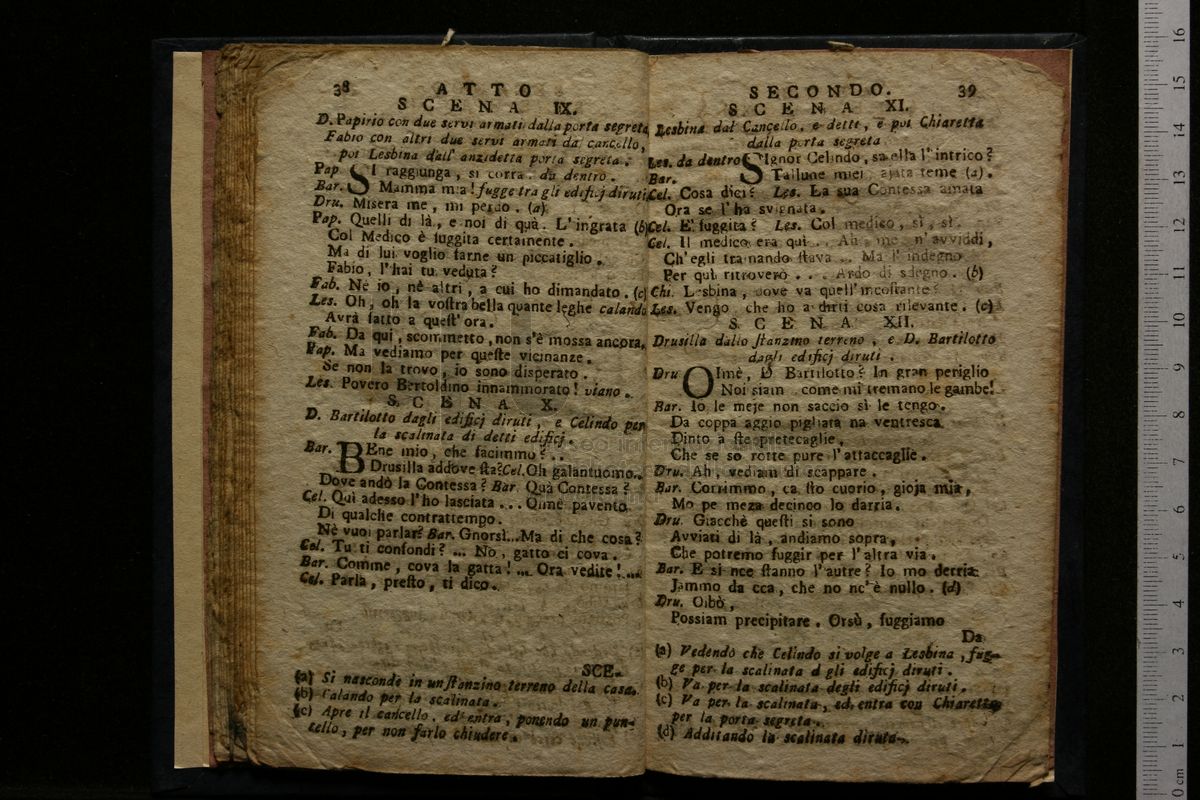 38 ATTO
SCENA IX.
D. Papirio con due servi armati dalla porta segreta
Fabio con altri due servi armati da' cancello,
poi Lesbina dall' anzidetta porta segreta.
Pap. SI raggiunga, si corra. da dentro.
Bar. Mamma mia! fugge tra gli edificj diruti
Dru. Misera me, mi perdo. (a)
Pap. Quelli di là, e noi di quà. L'ingrata (b)
Col Medico è fuggita certamente.
Ma di lui voglio farne un piccatiglio.
Fabio, l'hai tu veduta?
Fab. Nè io, nè altri, a cui ho dimandato. (c)
Les. Oh, oh la vostra bella quante leghe calando
Avrà fatto a quest' ora.
Fab. Da qui, scommetto, non s'è mossa ancora,
Pap. Ma vediamo per queste vicinanze.
Se non la trovo, io sono disperato.
Les. Povero Bertoldino innammorato! viano.
SCENA X.
D. Bartilotto dagli edificj diruti, e Celindo per
la scalinata di detti edificj.
Bar. BEne mio, che facimmo? ..
Drusilla addove sta? Cel. Oh galantuomo..
Dove andò la Contessa? Bar. Quà Contessa?
Cel. Quì adesso l'ho lasciata ... Oimè pavento
Di qualche contrattempo.
Nè vuoi parlar? Bar. Gnorsì...Ma di che cosa?
Cel. Tu ti confondi? ... No, gatto ci cova.
Bar. Comme, cova la gatta! ... Ora vedite! ...
Cel. Parla, presto, ti dico.
SCE-
(a) Si nasconde in un stanzino terreno della casa.
(b) Calando per la scalinata.
(c) Apre il cancello, ed entra, ponendo un pun-
tello, per non farlo chiudere.
SECONDO. 39
SCENA XI.
Lesbina dal Cancello, e detti, e poi Chiaretta
dalla porta segreta
Les. da dentro SIgnor Celindo, sa ella l'intrico?
Bar. Tallune miei, ajuta teme (a).
Cel. Cosa dici? Les. La sua Contessa amata
Ora se l'ha svignata.
Cel. E' fuggita? Les. Col medico, sì, sì.
Cel. Il medico era quì .. Ah, me n'avviddi,
Ch'egli tramando stava ... Ma l'indegno
Per quì ritroverò ... Ardo di sdegno. (b)
Chi. Lesbina, dove va quell'incostante?
Les. Vengo, che ho a dirti cosa rilevante. (c)
SCENA XII.
Drusilla dallo stanzino terreno, e D. Bartilotto
dagli edificj diruti.
Dru. OImè, D. Bartilotto? In gran periglio
Noi siam, come mi tremano le gambe!
Bar. Io le meje non saccio sì le tengo.
Da coppa aggio pigliata na ventresca
Dinto a ste pretecaglie,
Che se so rotte pure l'attaccaglie.
Dru. Ah, vediam di scappare.
Bar. Corrimmo, ca sto cuorio, gioja mia,
Mo pe meza decinco lo darria.
Dru. Giacchè questi si sono
Avviati di là, andiamo sopra,
Che potremo fuggir per l'altra via.
Bar. E si nce stanno l'autre? Io mo derria:
Jammo da cca, che no nc'è nullo. (d)
Dru. Oibò,
Possiam precipitare. Orsù, fuggiamo
Da
(a) Vedendo che Celindo si volge a Lesbina, fug-
ge per la scalinata degli edificj diruti.
(b) Va per la scalinata degli edificj diruti.
(c) Va per la scalinata, ed entra con Chiaretta
per la porta segreta.
(d) Additando la scalinata diruta.